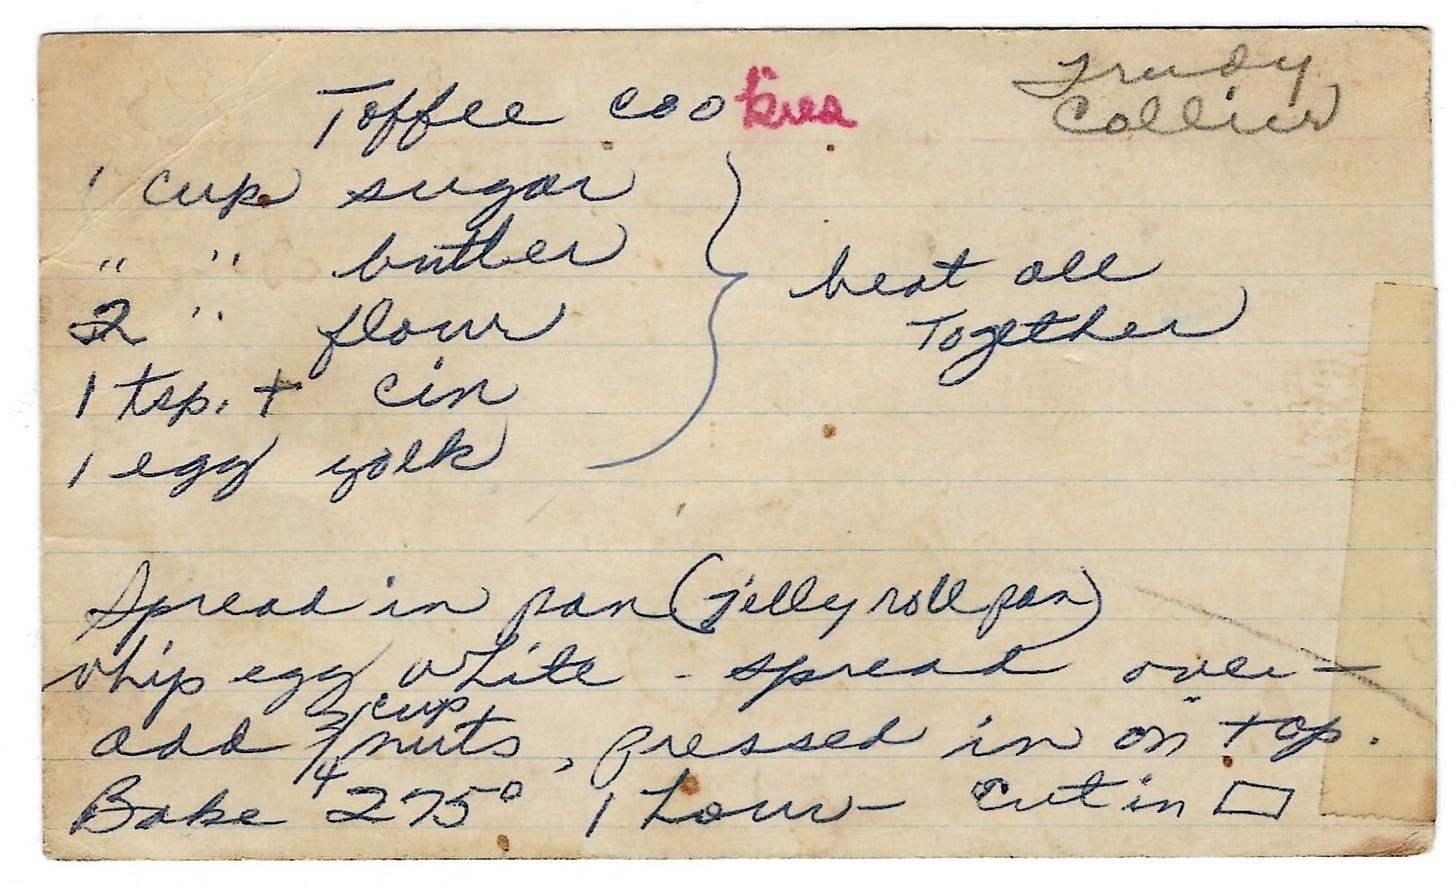 Trudy
Collier
Toffee cookies
1 cup sugar
" " butter
2 " flour
1 tsp. + cin
1 egg yolk
beat all
Together
Spread in pan (jelly roll pan)
whip egg white - spread over -
add 3/4 cup nuts, pressed in on top.
Bake 275° 1 hour - cut in ▭